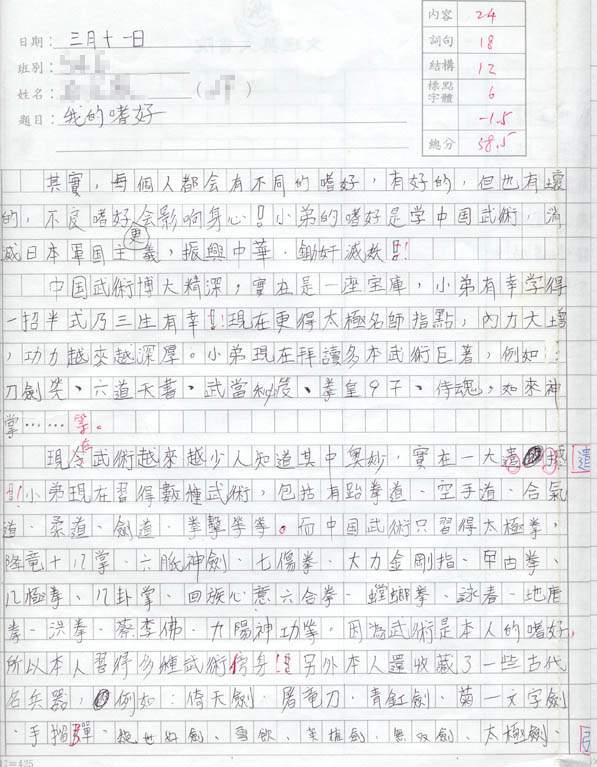 內容 24
日期：三月十一日 詞句 18
班別： 結構 12
姓名：（ ） 標點字體 6
題目：我的嗜好 -1.5
總分 58.5
其實，每個人都会有不同的嗜好，有好的，但也有壞
的，不良嗜好会影响身心!!小弟的嗜好是学中国武術，消
滅日本軍国主義，振興中華．鋤奸滅敖!!
中国武術博大精深，實在是一座宝庫，小弟有幸学得
一招半式乃三生有幸!!現在更得太極名師指點，內力大增
，功力越來越深厚。小弟現在拜讀多本武術巨著，例如：
刀劍笑、六道天書、武當秘笈、拳皇97、侍魂，如來神
掌……等。
現在武術越來越少人知道其中奧妙，實在一大遺憾 遣
!!小弟現在習得數種武術，包括有跆拳道．空手道．合氣
道．柔道．劍道．拳擊等等。而中国武術只習得太極拳，
降竜十八掌．六脈神劍．七傷拳．大力金剛指．甲由拳．
八極拳、八卦掌、回族心意六合拳．螳螂拳．詠春．地唐
拳．洪拳．蔡李佛．九陽神功等．因為武術是本人的嗜好，
所以本人習得多種武術傍身!!另外本人還收藏了一些古代
名兵器，例如：倚天劍．屠竜刀．青釭劍．菊一文字劍
．手榴彈．絕世好劍、雪飲、英雄劍．無双劍、太極劍．
12=425